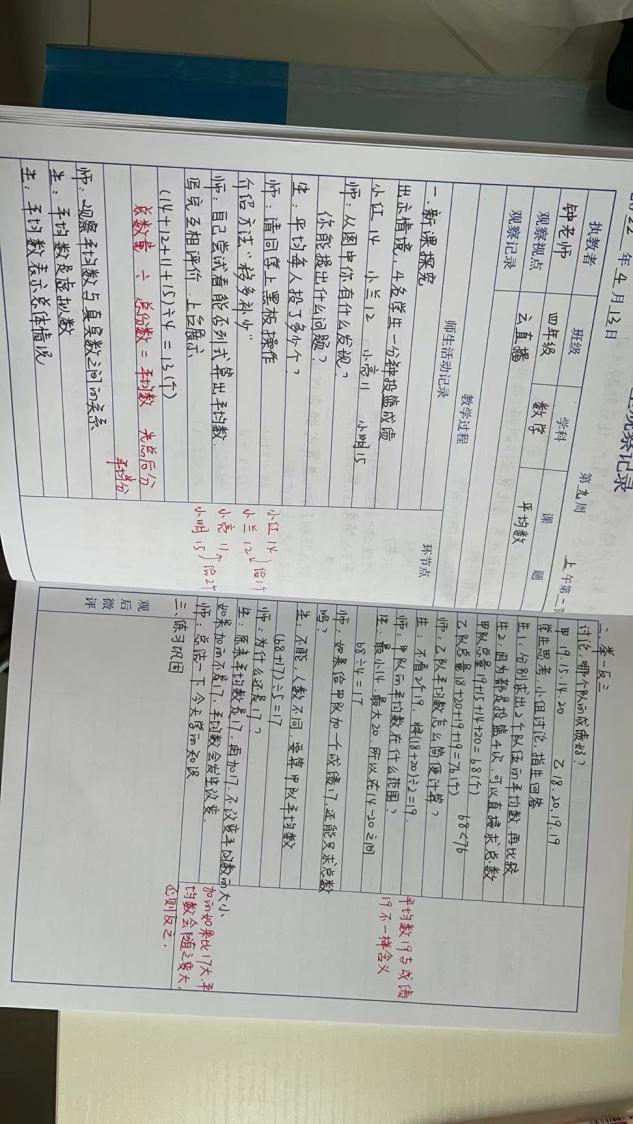 观察记录
2022年4月13日
第九周
上午第二节
执教者 钟老师 班级 四年级 学科 数学 课题 平均数
观察视点 云直播
观察记录
教学过程
师生活动记录 环节点
一、新课探究
出示情境，4名学生一分钟投篮成绩
小红 14 小兰 12 小亮 11 小明 15
师：从图中你有什么发现？
你能提出什么问题？
生：平均每人投了多少个？
师：请同学上黑板操作
介绍方法"移多补少"
师：自己尝试看能否列式算出平均数.
写完互相评价 上台展示
(14+12+11+15)÷4=13(个)
总数量÷总份数=平均数 先总后分
平均分
师：观察平均数与真实数之间的关系
生：平均数是虚拟数
生：平均数表示总体情况
小红 14
小兰 12
小亮 11
小明 15
二、举一反三
讨论：哪个队的成绩好？
甲 19.15.14.20 乙 18.20.19.19
学生思考，小组讨论，指生回答
生1：分别求出2个队伍的平均数，再比较
生2：因为都是投篮4次，可以直接求总数
甲队总量 19+15+14+20=68(个)
乙队总量 18+20+19+19=76(个) 68<76
师：乙队平均数怎么简便计算？
生：不看2个19，将(18+20)÷2=19
师：甲队的平均数在什么范围？
生：最小14，最大20，所以在14-20之间
68÷4=17
师：如果给甲队加一个成绩17，还能只求总数
吗？
生：不能，人数不同，要算甲队平均数
(68+17)÷5=17
师：为什么还是17？
生：原来平均数是17，再加17，不改变平均数的大小
如果加的不是17，平均数会发生改变
师：总结一下今天学的知识
三、练习巩固
平均数19与成绩
19不一样含义
加的如果比17大，平
均数会随之变大，
否则反之.
观后微评